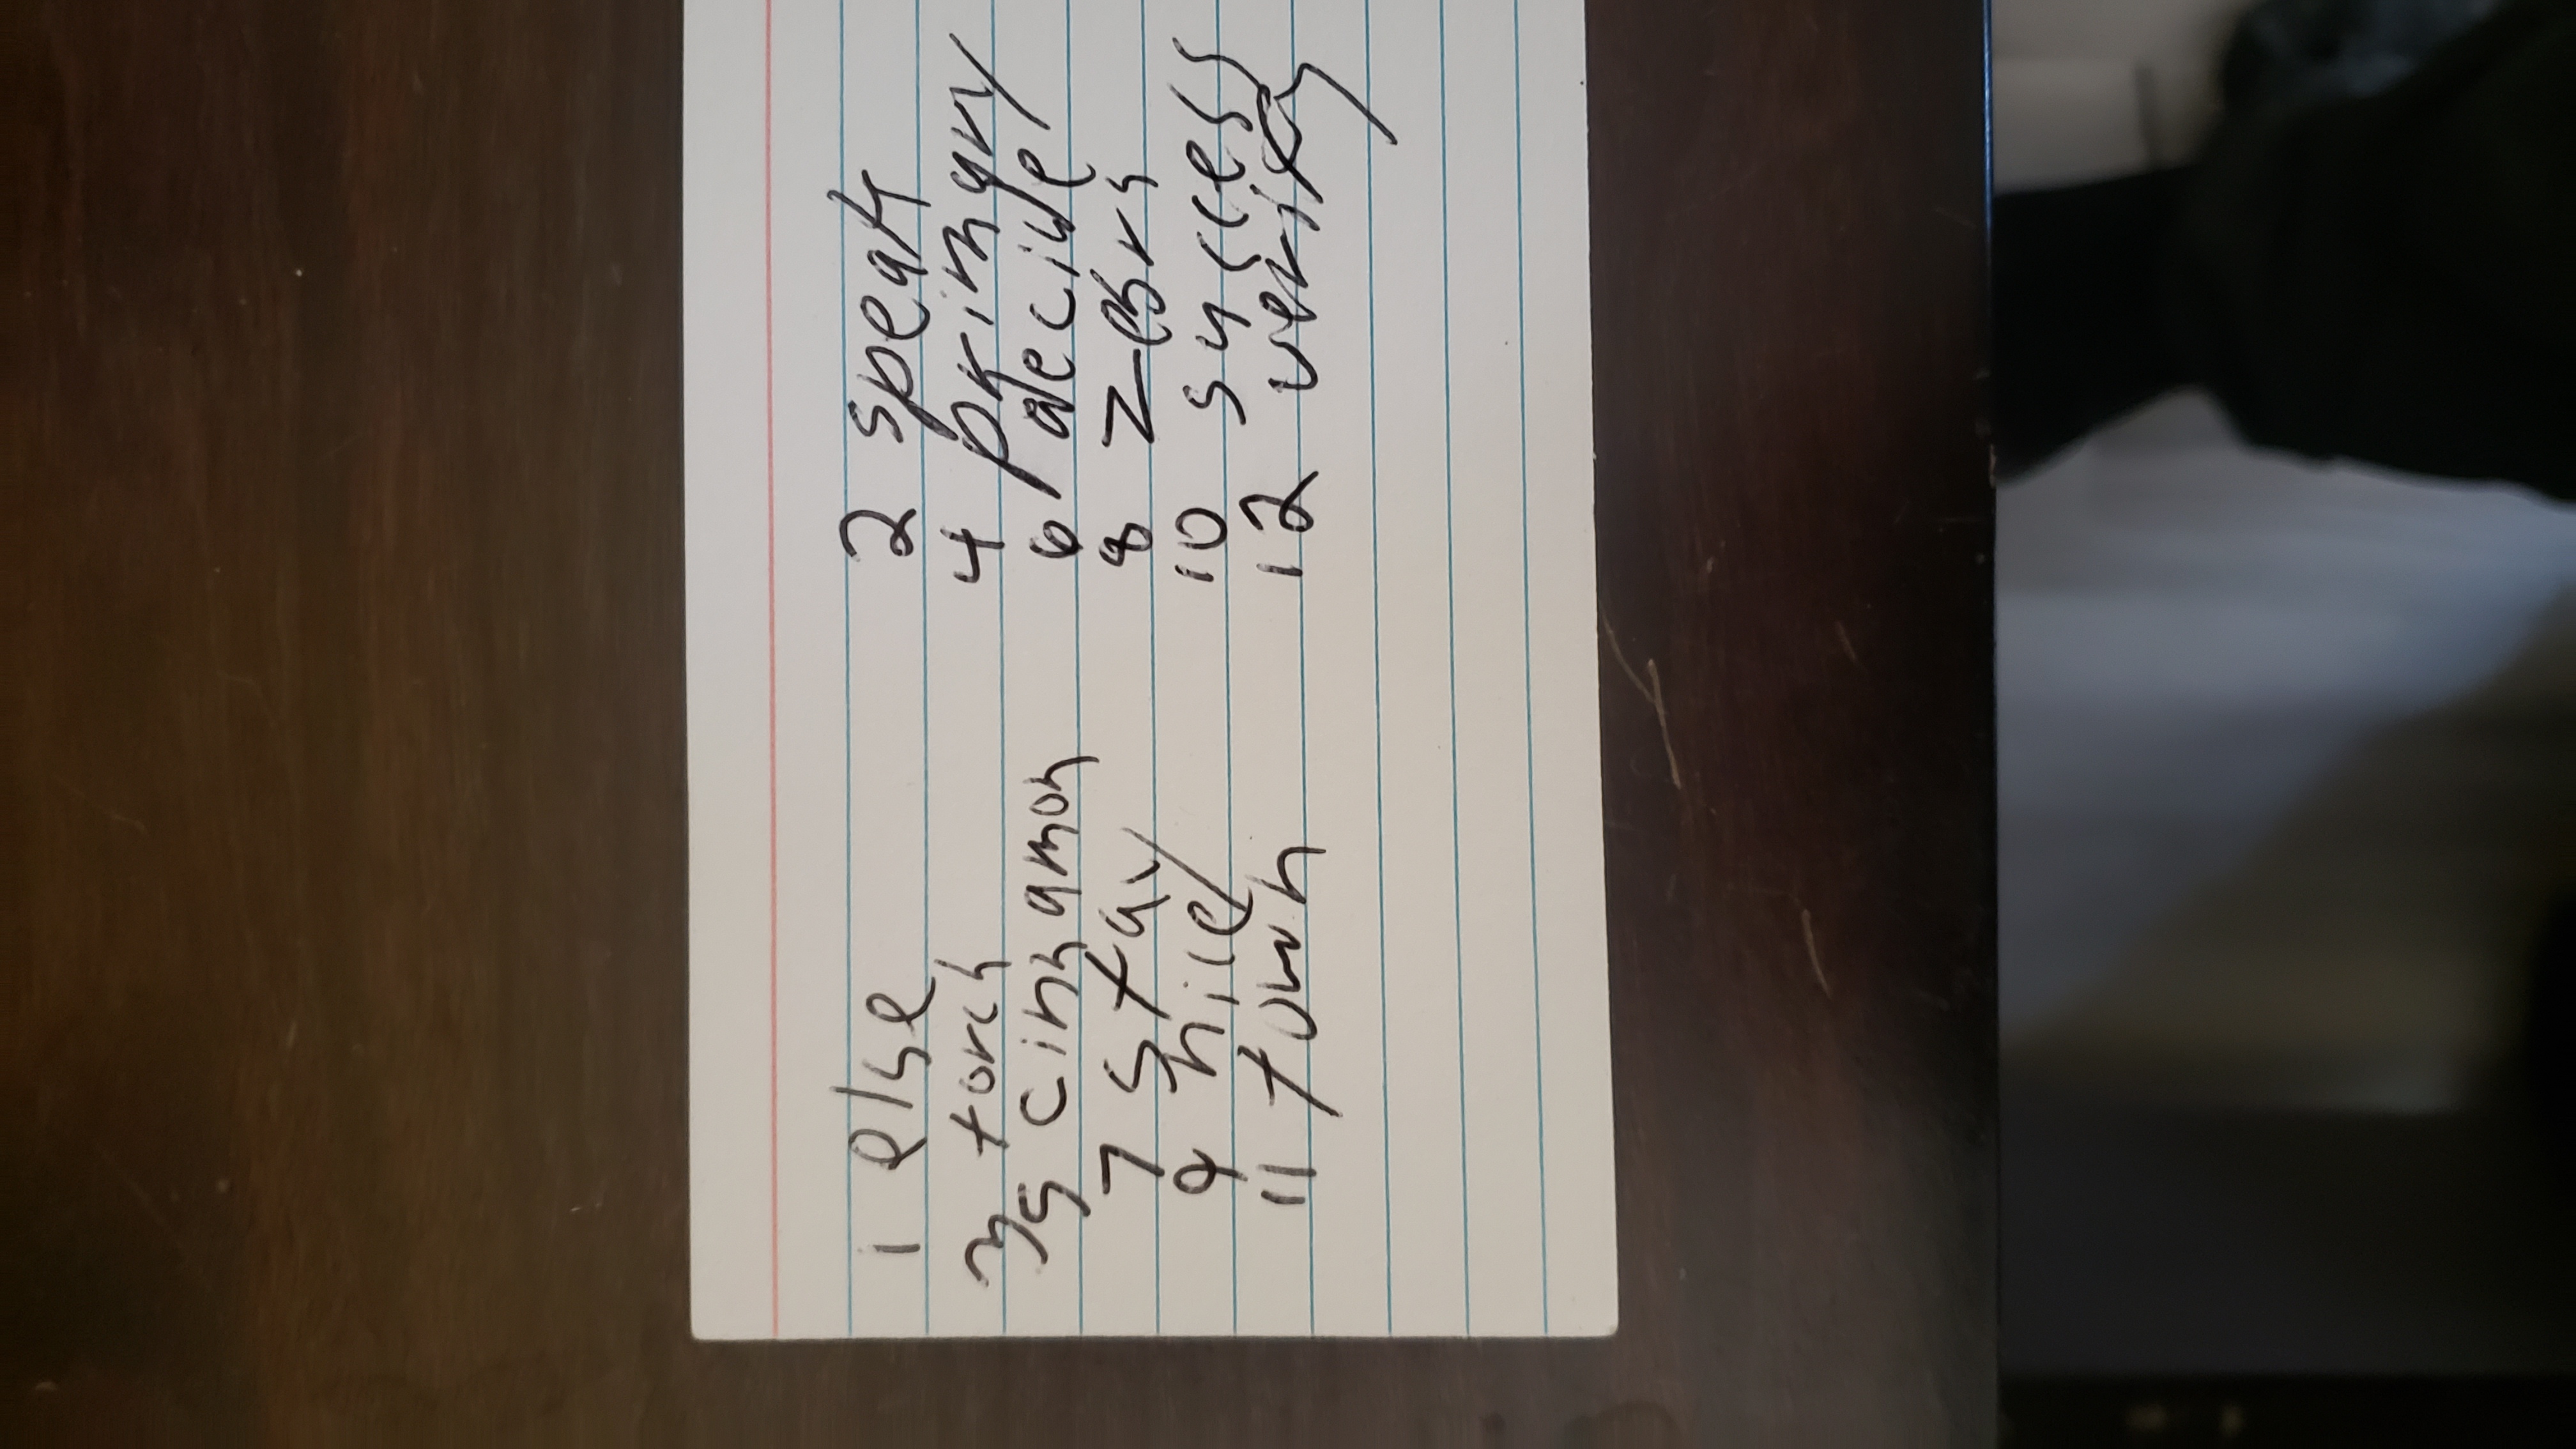 1 else 2 speak
3 torch 4 primary
5 cinnamon 6 decide
7 stay 8 zebra
9 nice 10 success
11 town 12 verify